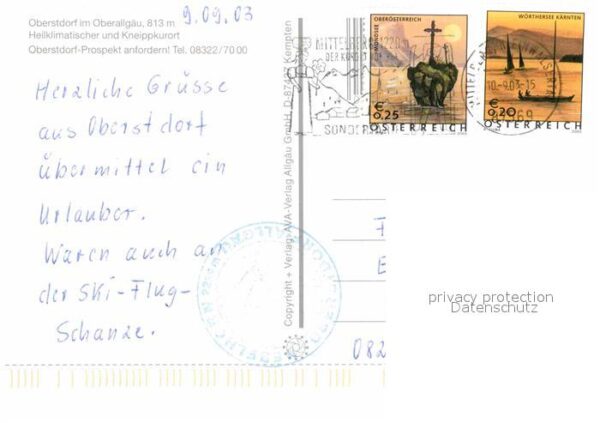 Oberstdorf im Oberallgäu, 813 m
Heilklimatischer und Kneippkurort
Oberstdorf-Prospekt anfordern! Tel. 08322/7000
9.09.03
Herzliche Grüsse
aus Oberstdorf
übermittel ein
Urlauber.
Waren auch an
der Ski-Flug-
Schanze.
Copyright + Verlag: AVA-Verlag Allgäu GmbH, D-87437 Kempten
OBERÖSTERREICH
€ 0,25
ÖSTERREICH
WÖRTHERSEE KÄRNTEN
€ 0,20
ÖSTERREICH
DER KUNST
SONDER
-9.03-15
F
E
082
privacy protection
Datenschutz